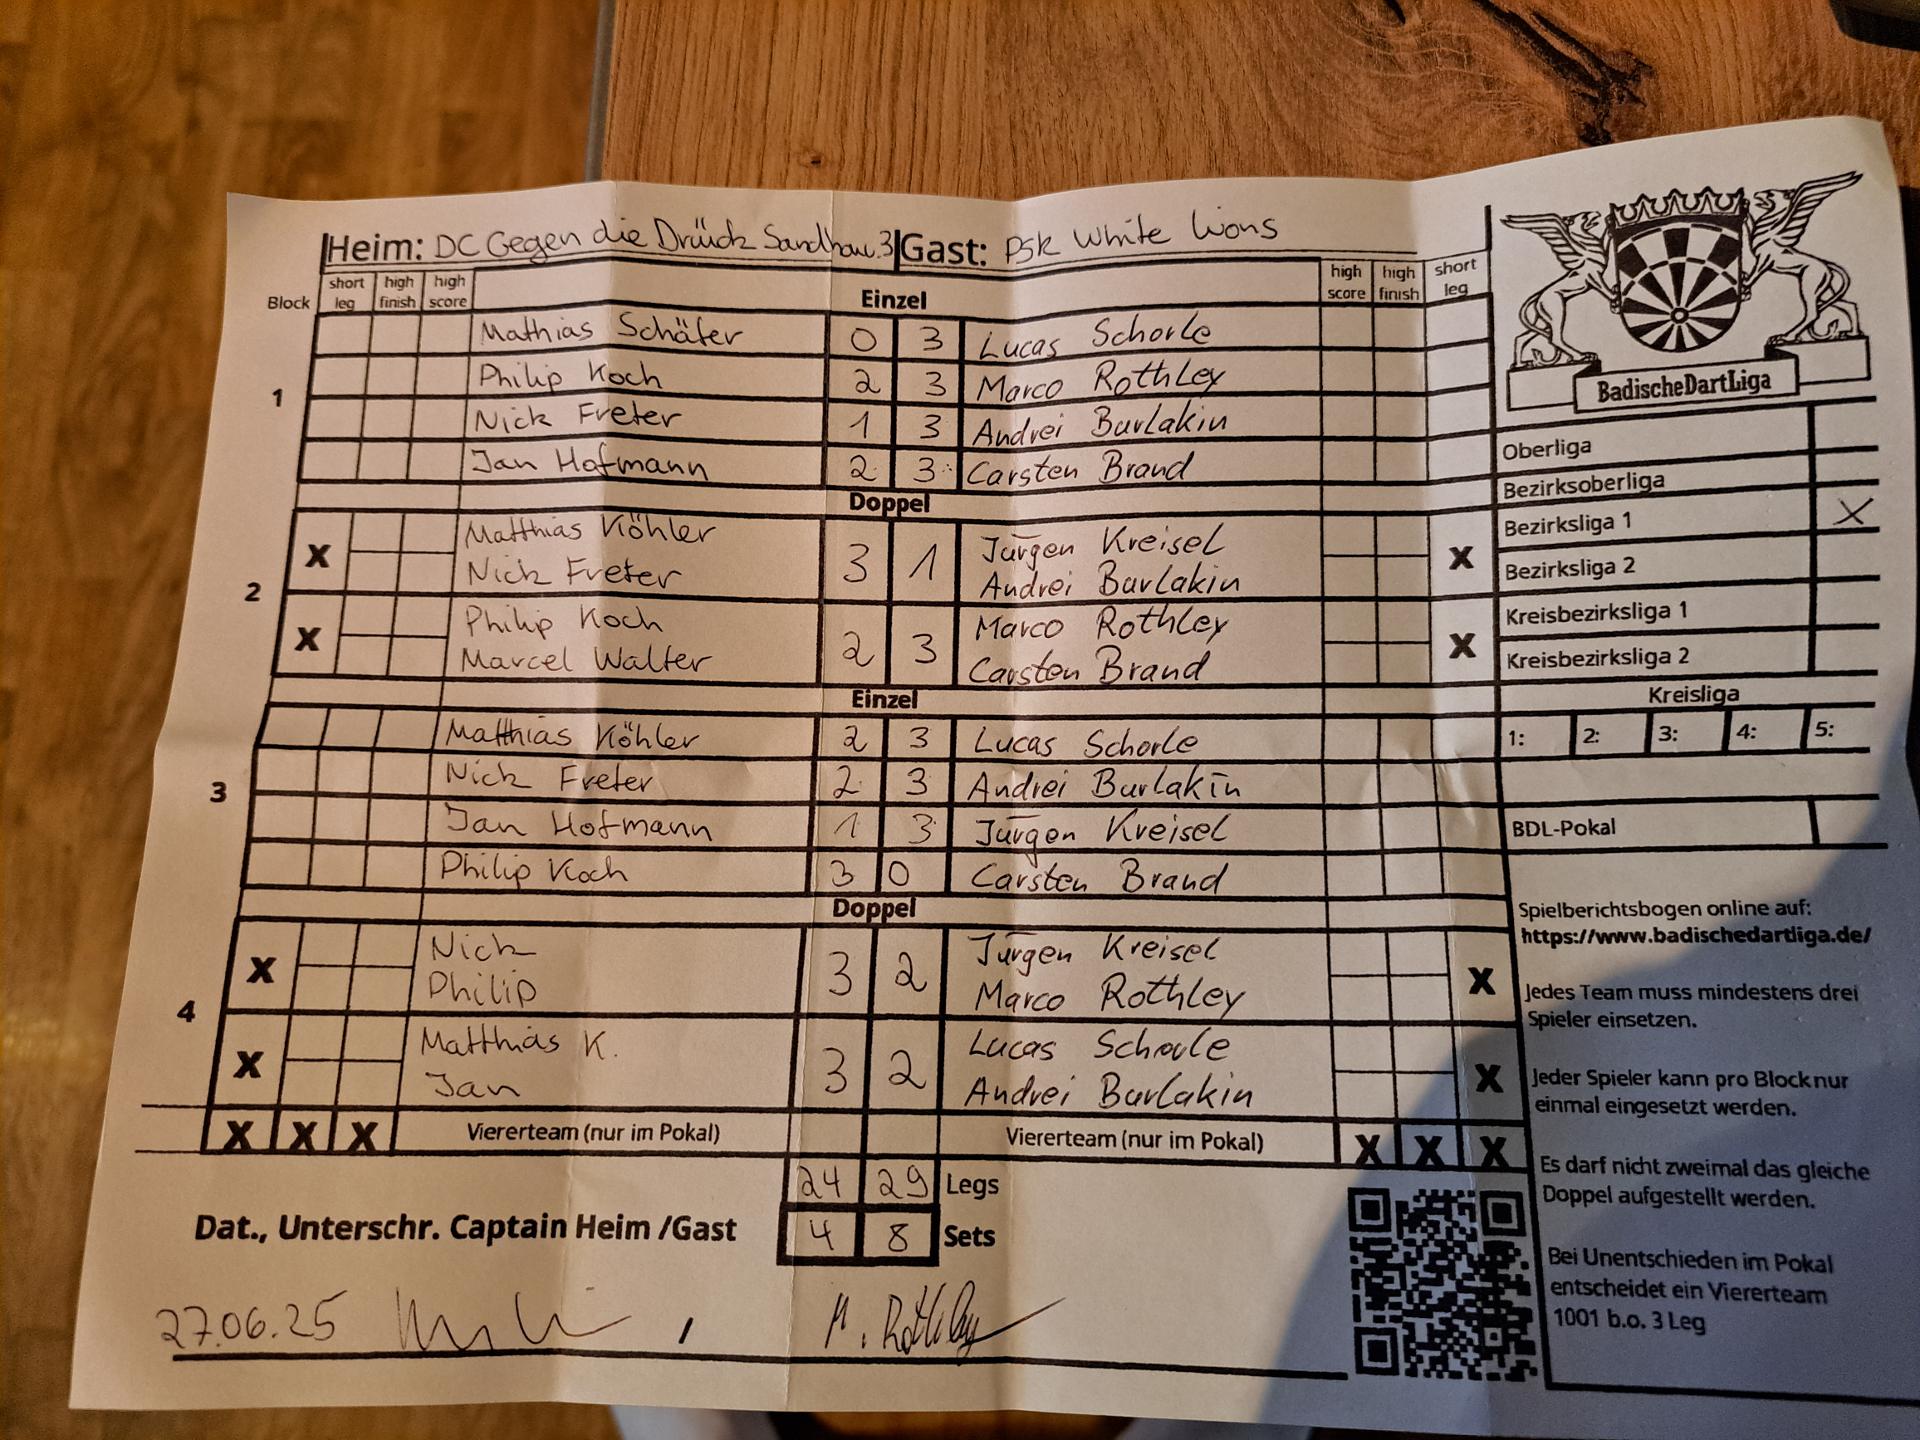 Heim: DC Gegen die Drück Sandhau.3 Gast: PSK White Lions
Block short leg high finish high score Einzel high score high finish short leg
1
Mathias Schäfer 0 3 Lucas Schorle
Philip Koch 2 3 Marco Rothley
Nick Freter 1 3 Andrei Burlakin
Jan Hofmann 2 3 Carsten Brand
Doppel
2
X Matthias Köhler 3 1 Jürgen Kreisel X
Nick Freter Andrei Burlakin
X Philip Koch 2 3 Marco Rothley X
Marcel Walter Carsten Brand
Einzel
3
Matthias Köhler 2 3 Lucas Schorle
Nick Freter 2 3 Andrei Burlakin
Jan Hofmann 1 3 Jürgen Kreisel
Philip Koch 3 0 Carsten Brand
Doppel
4
X Nick 3 2 Jürgen Kreisel X
Philip Marco Rothley
X Matthias K. 3 2 Lucas Schorle X
Jan Andrei Burlakin
X X X Viererteam (nur im Pokal) Viererteam (nur im Pokal) X X X
24 29 Legs
Dat., Unterschr. Captain Heim /Gast 4 8 Sets
27.06.25 / M. Rothley
BadischeDartLiga
Oberliga
Bezirksoberliga
Bezirksliga 1 X
Bezirksliga 2
Kreisbezirksliga 1
Kreisbezirksliga 2
Kreisliga
1: 2: 3: 4: 5:
BDL-Pokal
Spielberichtsbogen online auf:
https://www.badischedartliga.de/
Jedes Team muss mindestens drei
Spieler einsetzen.
Jeder Spieler kann pro Block nur
einmal eingesetzt werden.
Es darf nicht zweimal das gleiche
Doppel aufgestellt werden.
Bei Unentschieden im Pokal
entscheidet ein Viererteam
1001 b.o. 3 Leg